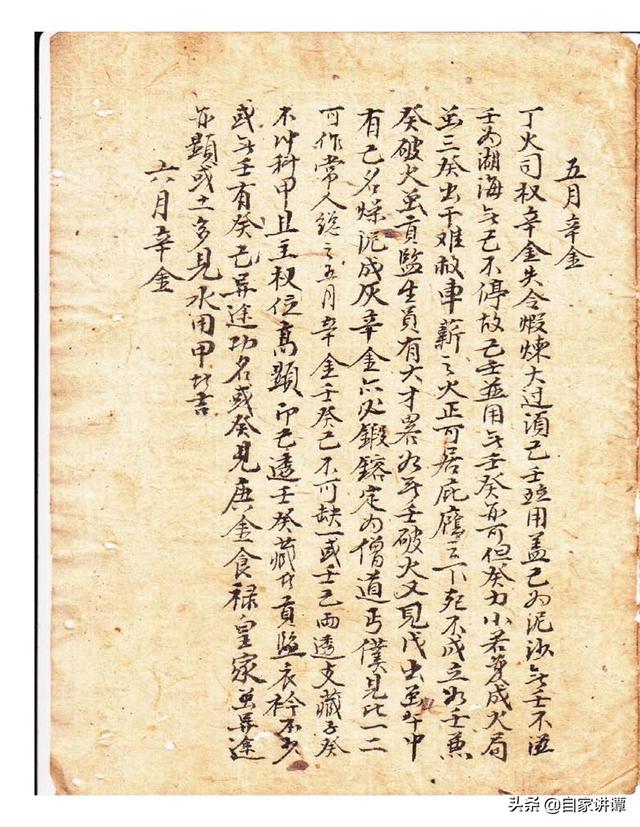 五月辛金
丁火司权辛金失令煅煉大过湏己壬竝用盖己为泥沙无壬不湿
壬为湖海无己不停故己壬並用无壬癸亦可但癸力小若夏成火局
並三癸出干难救車薪之火正可居庇廕之下死不成立如壬兼
癸破火並贡監生員有大才畧如无壬破火又見戊出並午中
有己名燥泥成灰辛金亦必鍛鎔定为僧道丐僕見比一二
可作常人総之五月辛金壬癸己不可缺一或壬己両透支藏子癸
不以科甲且主权位高顯即己透壬癸藏者貢監衣衿不少
或无壬有癸己異途功名或癸見庚金食禄皇家並異途
亦顯或土多見水用甲者吉
六月辛金
头条 @自家讲谭